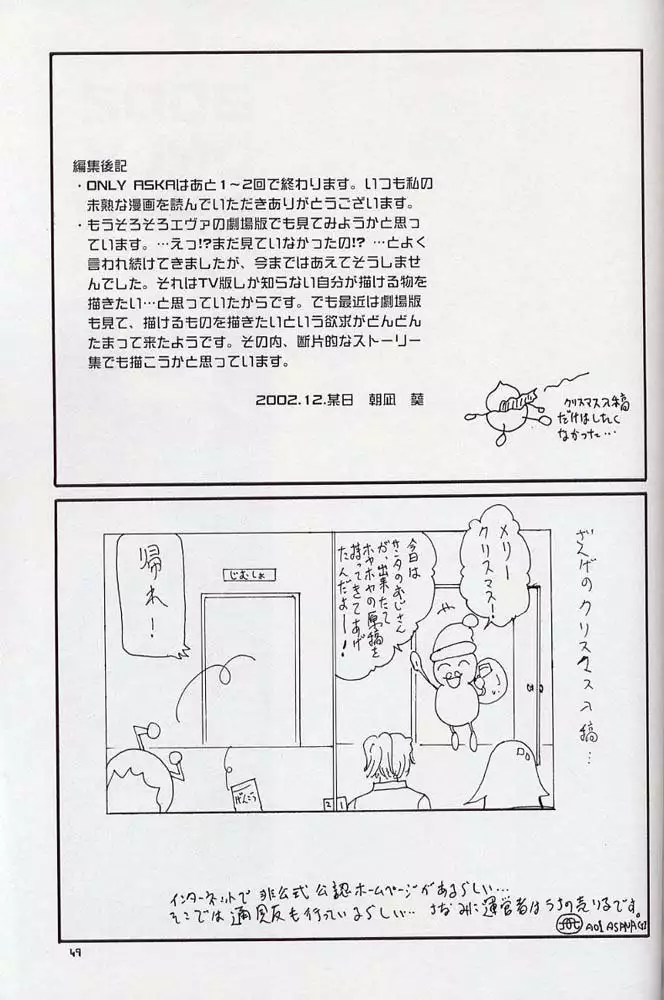 編集後記
・ONLY ASKAはあと1〜2回で終わります。いつも私の
未熟な漫画を読んでいただきありがとうございます。
・もうそろそろエヴァの劇場版でも見てみようかと思っ
ています。…えっ!?まだ見ていなかったの!? …とよく
言われ続けてきましたが、今まではあえてそうしませ
んでした。それはTV版しか知らない自分が描ける物を
描きたい…と思っていたからです。でも最近は劇場版
も見て、描けるものを描きたいという欲求がどんどん
たまって来たようです。その内、断片的なストーリー
集でも描こうかと思っています。
2002.12.某日 朝凪 葵
クリスマス入稿
だけはしたく
なかった…
ざんげのクリスマス入稿…
メリー
クリスマス!
今日は
サンタのおじさん
が、出来たて
ホヤホヤの原稿を
持ってきてあげ
たんだよー!
1
じむしょ
帰れ!
げんこう
2
インターネットで非公式公認ホームページがあるらしい…
そこでは通販も行っているらしい… ちなみに運営者はうちの売り子です。
A01 ASANAGI
49